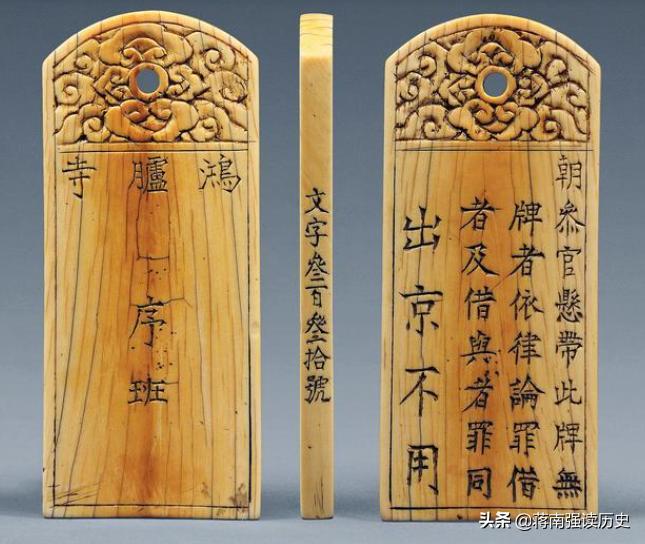 鴻臚寺
序班
文字叄百叄拾號
朝叅官懸帶此牌無
牌者依律論罪借
者及借與者罪同
出京不用
头条 @蒋南强读历史